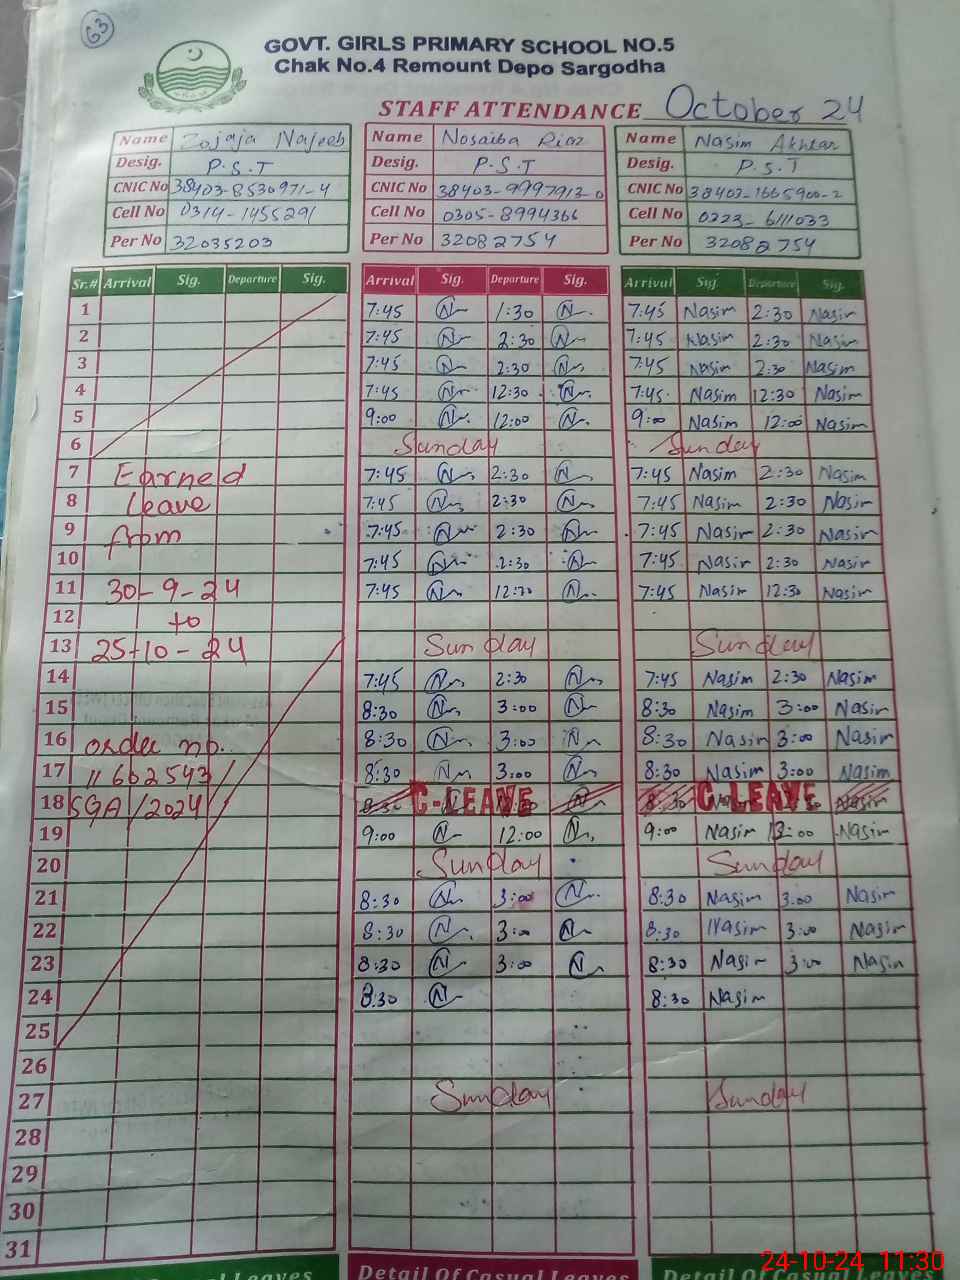 63
GOVT. GIRLS PRIMARY SCHOOL NO.5
Chak No.4 Remount Depo Sargodha
STAFF ATTENDANCE October 24
Name Zojaja Najeeb Name Nosaiba Riaz Name Nasim Akhtar
Desig. P.S.T Desig. P.S.T Desig. P.S.T
CNIC No 38403-8530971-4 CNIC No 38403-9997913-0 CNIC No 38403-1665900-2
Cell No 0314-1455291 Cell No 0305-8994366 Cell No 0323-6111033
Per No 32035203 Per No 32082754 Per No 32082754
Sr.# Arrival Sig. Departure Sig. Arrival Sig. Departure Sig. Arrival Sig. Departure Sig.
1 7:45 N 1:30 N 7:45 Nasim 2:30 Nasim
2 7:45 N 2:30 N 7:45 Nasim 2:30 Nasim
3 7:45 N 2:30 N 7:45 Nasim 2:30 Nasim
4 7:45 N 12:30 N 7:45 Nasim 12:30 Nasim
5 9:00 N 12:00 N 9:00 Nasim 12:00 Nasim
6 Sunday Sunday
7 Earned 7:45 N 2:30 N 7:45 Nasim 2:30 Nasim
8 Leave 7:45 N 2:30 N 7:45 Nasim 2:30 Nasim
9 from 7:45 N 2:30 N 7:45 Nasim 2:30 Nasim
10 7:45 N 2:30 N 7:45 Nasim 2:30 Nasim
11 30-9-24 7:45 N 12:30 N 7:45 Nasim 12:30 Nasim
12 to
13 25-10-24 Sunday Sunday
14 7:45 N 2:30 N 7:45 Nasim 2:30 Nasim
15 8:30 N 3:00 N 8:30 Nasim 3:00 Nasim
16 order no. 8:30 N 3:00 N 8:30 Nasim 3:00 Nasim
17 11602543/ 8:30 N 3:00 N 8:30 Nasim 3:00 Nasim
18 SGA/2024 8:30 C-LEAVE N 8:30 C-LEAVE Nasim
19 9:00 N 12:00 N 9:00 Nasim 12:00 Nasim
20 Sunday Sunday
21 8:30 N 3:00 N 8:30 Nasim 3:00 Nasim
22 8:30 N 3:00 N 8:30 Nasim 3:00 Nasim
23 8:30 N 3:00 N 8:30 Nasim 3:00 Nasim
24 8:30 N 8:30 Nasim
25
26
27 Sunday Sunday
28
29
30
31
Detail Of Casual Leaves Detail Of Casual Leaves Detail Of Casual Leaves
24-10-24 11:30